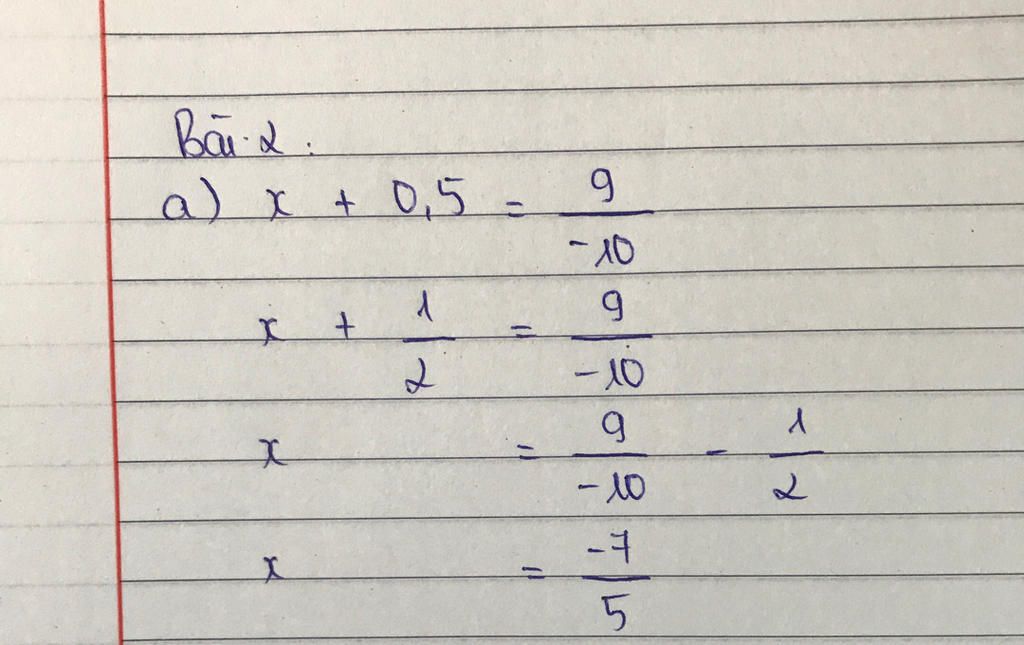 Bài 2:
a) x + 0,5 = 9/-10
x + 1/2 = 9/-10
x = 9/-10 - 1/2
x = -7/5